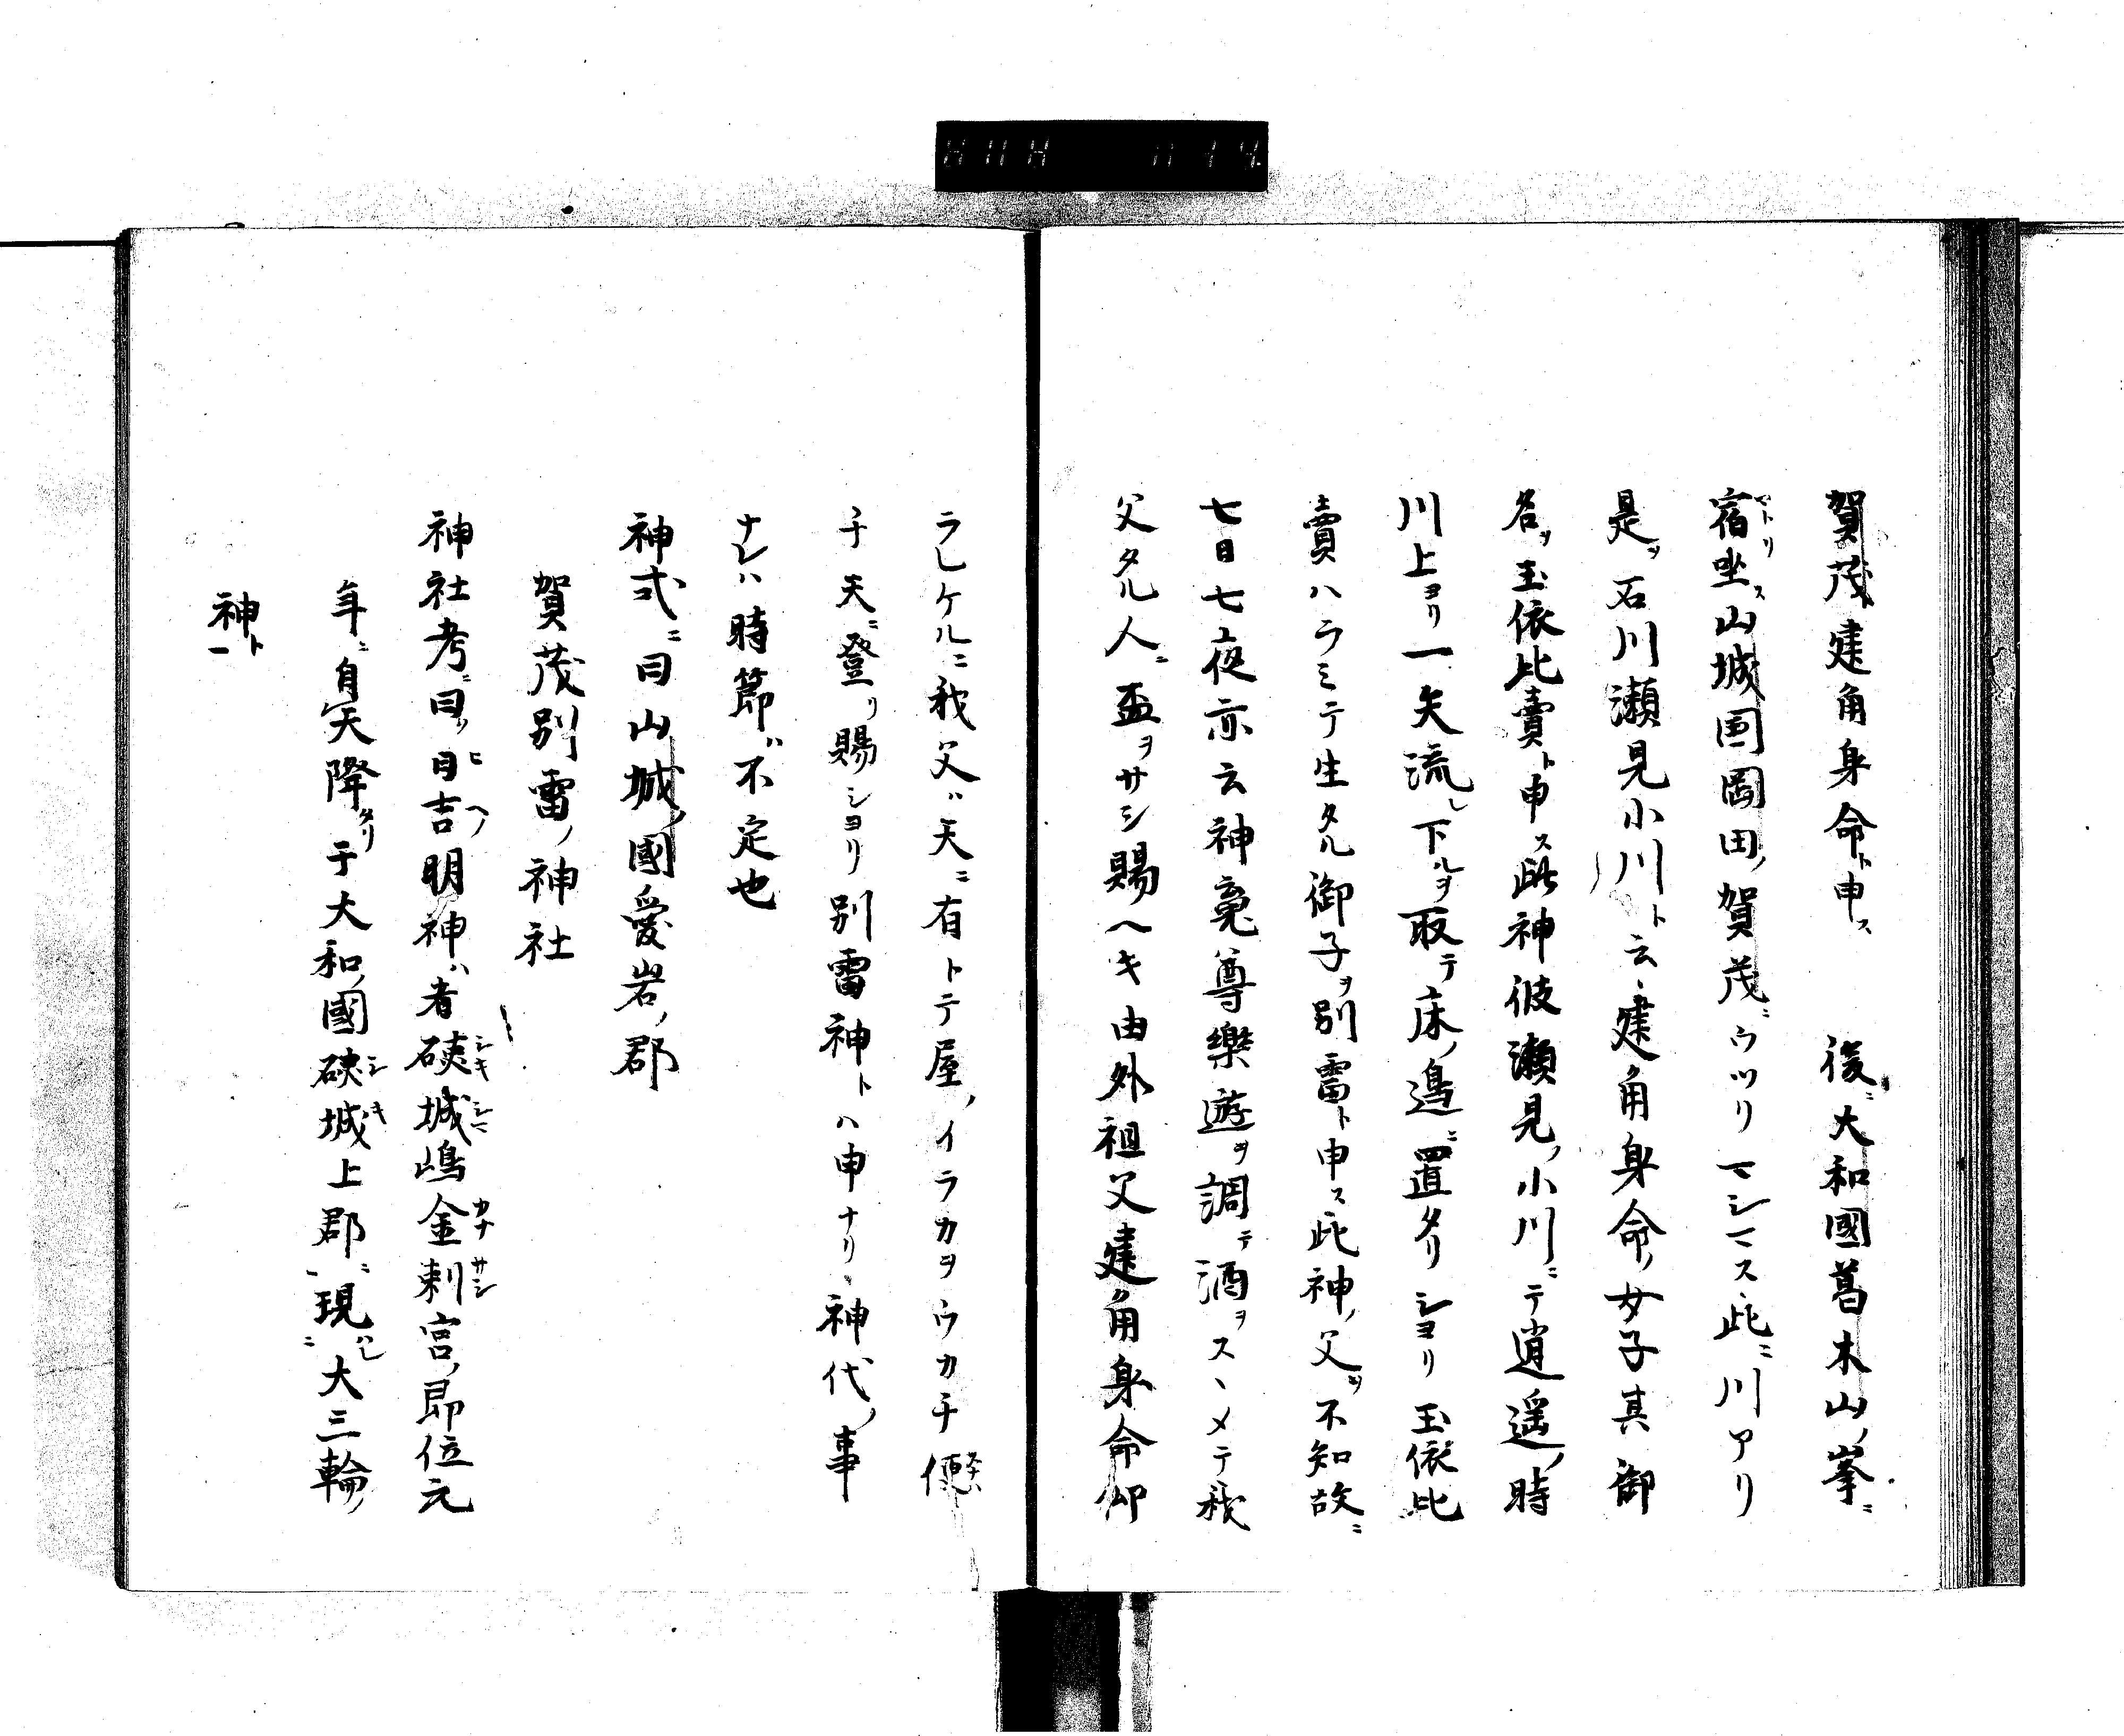 賀茂建角身命ト申ス　後ニ大和國葛木山ノ峯ニ
宿坐ス山城国岡田ノ賀茂ニウツリマシマス此ニ川アリ
是ヲ石川瀬見小川ト云建角身命ノ女子其御
名ヲ玉依比賣ト申ス此神彼瀬見ノ小川ニテ逍遥ノ時
川上ヨリ一矢流レ下ルヲ取テ床ノ邊ニ置タリシヨリ玉依比
賣ハラミテ生タル御子ヲ別雷ト申ス此神ノ父ヲ不知故ニ
七日七夜亦云神尊樂遊ヲ調テ酒ヲスヽメテ我
父タル人ニ盃ヲサシ賜ヘキ由外祖父建角身命仰
ラレケルニ我父ハ天ニ有トテ屋ノイラカヲウカチ便
チ天ニ登リ賜シヨリ別雷神トハ申ナリ神代ノ事
ナレハ時節ハ不定也
神式ニ曰山城ノ國愛岩ノ郡
賀茂別雷ノ神社
神社考ニ曰ク日吉ノ明神ハ者磯城嶋金刺宮ノ即位元
年ニ自天降リ于大和ノ國磯城上郡ニ現レ大三輪ノ
神ト